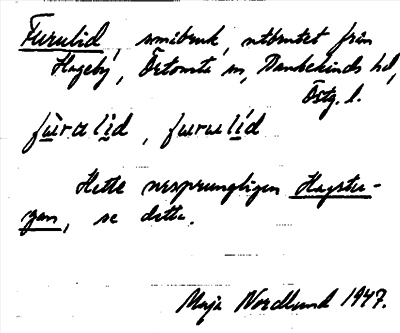 Furulid, småbruk, utbrutet från
Hageby, Örtomta sn, Bankekinds hd,
Östg. l.
fùralìd, furulíd
Hette ursprungligen Hagstu-
gan, se detta.
Maja Nordlund 1947.